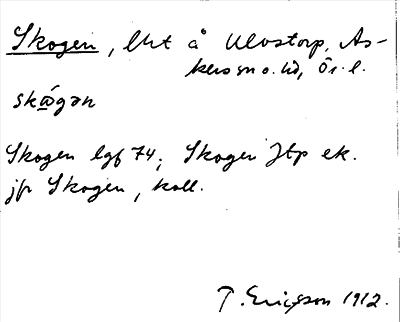 Skogen, lht å Ulvstorp, As-
kers sn o. hd, Ör. l.
skωgən
Skogen lgf 74; Skogen Jtp ek.
jfr Skogen, koll.
T. Ericsson 1912.